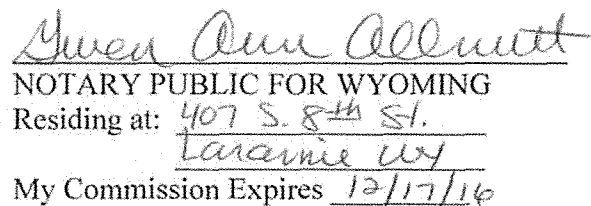 Gwen Ann
NOTARY PUBLIC FOR WYOMING
Residing at: 407 S. 8th St.
Laramie WY
My Commission Expires 12/17/16